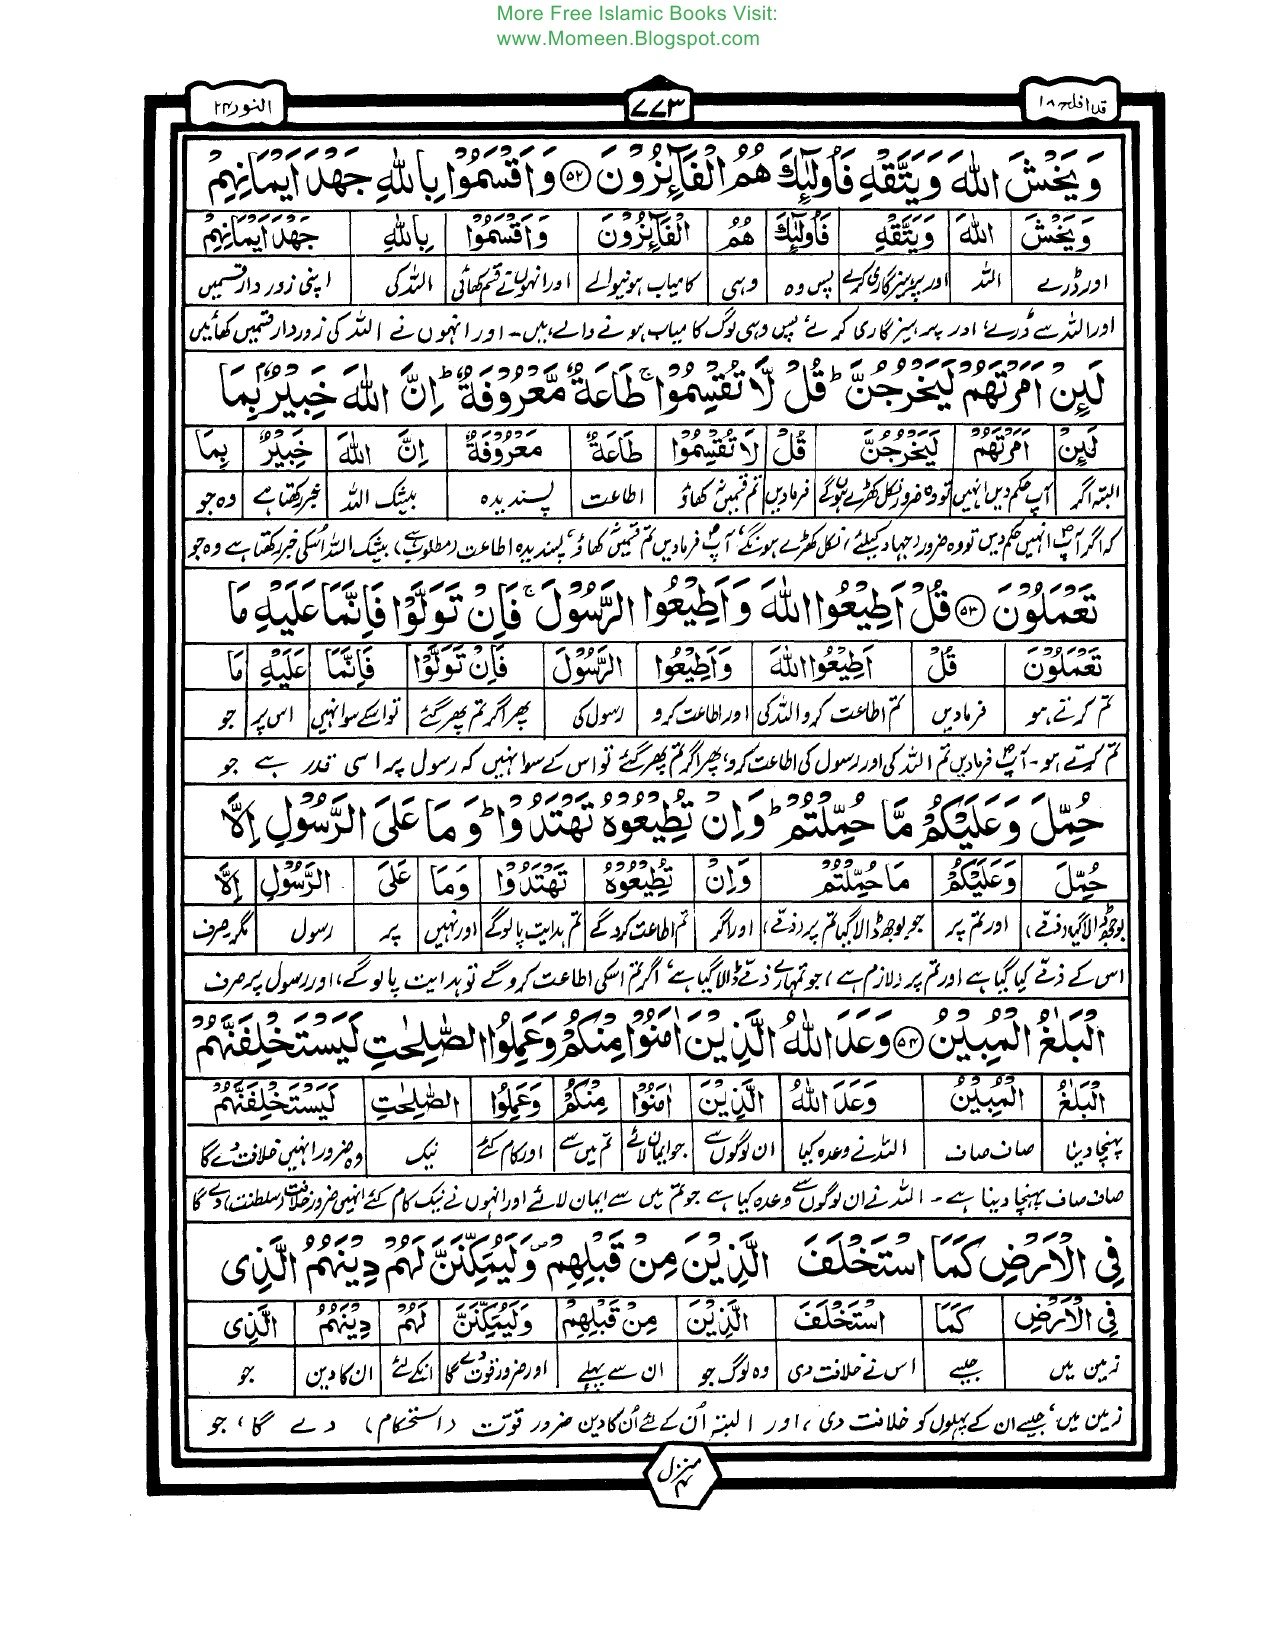 More Free Islamic Books Visit:
www.Momeen.Blogspot.com
قد افلح ۱۸
۷۷۳
النور ۲۴
وَيَخْشَ اللهَ وَيَتَّقْهِ فَأُولٰٓئِكَ هُمُ الْفَآئِزُوْنَ ۵۲ وَاَقْسَمُوْا بِاللهِ جَهْدَ اَيْمَانِهِمْ
وَيَخْشَ اللهَ وَيَتَّقْهِ فَأُولٰٓئِكَ هُمُ الْفَآئِزُوْنَ وَاَقْسَمُوْا بِاللهِ جَهْدَ اَيْمَانِهِمْ
اور ڈرے اللہ اور پرہیزگاری کرے پس وہ وہی کامیاب ہونیوالے اور انہوں نے قسم کھائی اللہ کی اپنی زور دار قسمیں
اور اللہ سے ڈرے، اور پرہیزگاری کرے، پس وہی لوگ کامیاب ہونے والے ہیں۔ اور انہوں نے اللہ کی زوردار قسمیں کھائیں
لَئِنْ اَمَرْتَهُمْ لَيَخْرُجُنَّ ؕ قُلْ لَّا تُقْسِمُوْا ۚ طَاعَةٌ مَّعْرُوْفَةٌ ؕ اِنَّ اللهَ خَبِيْرٌۢ بِمَا
لَئِنْ اَمَرْتَهُمْ لَيَخْرُجُنَّ قُلْ لَا تُقْسِمُوْا طَاعَةٌ مَعْرُوْفَةٌ اِنَّ اللهَ خَبِيْرٌ بِمَا
البتہ اگر آپ حکم دیں انہیں تو وہ ضرور نکل کھڑے ہوں گے فرمادیں تم قسمیں نہ کھاؤ اطاعت پسندیدہ بیشک اللہ خبر رکھتا ہے وہ جو
کہ اگر آپؐ انہیں حکم دیں تو وہ ضرور (جہاد کیلئے) نکل کھڑے ہونگے، آپؐ فرمادیں تم قسمیں نہ کھاؤ، پسندیدہ اطاعت (مطلوب ہے)، بیشک اللہ اُسکی خبر رکھتا ہے وہ جو
تَعْمَلُوْنَ ۵۳ قُلْ اَطِيْعُوا اللهَ وَاَطِيْعُوا الرَّسُوْلَ ۚ فَاِنْ تَوَلَّوْا فَاِنَّمَا عَلَيْهِ مَا
تَعْمَلُوْنَ قُلْ اَطِيْعُوا اللهَ وَاَطِيْعُوا الرَّسُوْلَ فَاِنْ تَوَلَّوْا فَاِنَّمَا عَلَيْهِ مَا
تم کرتے ہو فرمادیں تم اطاعت کرو اللہ کی اور اطاعت کرو رسول کی پھر اگر تم پھر گئے تو اسکے سوا نہیں اس پر جو
تم کرتے ہو۔ آپؐ فرمادیں تم اللہ کی اور رسول کی اطاعت کرو، پھر اگر تم پھر گئے تو اس کے سوا نہیں کہ رسول پر اسی قدر ہے جو
حُمِّلَ وَعَلَيْكُمْ مَّا حُمِّلْتُمْ ؕ وَاِنْ تُطِيْعُوْهُ تَهْتَدُوْا ؕ وَمَا عَلَى الرَّسُوْلِ اِلَّا
حُمِّلَ وَعَلَيْكُمْ مَا حُمِّلْتُمْ وَاِنْ تُطِيْعُوْهُ تَهْتَدُوْا وَمَا عَلَى الرَّسُوْلِ اِلَّا
بوجھ ڈالا گیا (ذمّے) اور تم پر جو بوجھ ڈالا گیا تم پر (ذمّے) اور اگر تم اطاعت کرو گے تم ہدایت پا لو گے اور نہیں پر رسول مگر صرف
اس کے ذمّے کیا گیا ہے اور تم پر (لازم ہے) جو تمہارے ذمّے ڈالا گیا ہے، اگر تم اسکی اطاعت کرو گے تو ہدایت پا لو گے، اور رسول پر صرف
الْبَلٰغُ الْمُبِيْنُ ۵۴ وَعَدَ اللهُ الَّذِيْنَ اٰمَنُوْا مِنْكُمْ وَعَمِلُوا الصّٰلِحٰتِ لَيَسْتَخْلِفَنَّهُمْ
الْبَلٰغُ الْمُبِيْنُ وَعَدَ اللهُ الَّذِيْنَ اٰمَنُوْا مِنْكُمْ وَعَمِلُوا الصّٰلِحٰتِ لَيَسْتَخْلِفَنَّهُمْ
پہنچا دینا صاف صاف اللہ نے وعدہ کیا ان لوگوں سے جو ایمان لائے تم میں سے اور کام کئے نیک وہ ضرور انہیں خلافت دے گا
صاف صاف پہنچا دینا ہے۔ اللہ نے ان لوگوں سے وعدہ کیا ہے جو تم میں سے ایمان لائے اور انہوں نے نیک کام کئے انہیں ضرور خلافت (سلطنت) دے گا
فِي الْاَرْضِ كَمَا اسْتَخْلَفَ الَّذِيْنَ مِنْ قَبْلِهِمْ ۪ وَلَيُمَكِّنَنَّ لَهُمْ دِيْنَهُمُ الَّذِي
فِي الْاَرْضِ كَمَا اسْتَخْلَفَ الَّذِيْنَ مِنْ قَبْلِهِمْ وَلَيُمَكِّنَنَّ لَهُمْ دِيْنَهُمُ الَّذِي
زمین میں جیسے اس نے خلافت دی وہ لوگ جو ان سے پہلے اور ضرور قوت دے گا انکے لئے ان کا دین جو
زمین میں، جیسے ان کے پہلوں کو خلافت دی، اور البتہ اُن کے لئے اُن کا دین ضرور قوّت (استحکام) دے گا، جو
منزل ۴